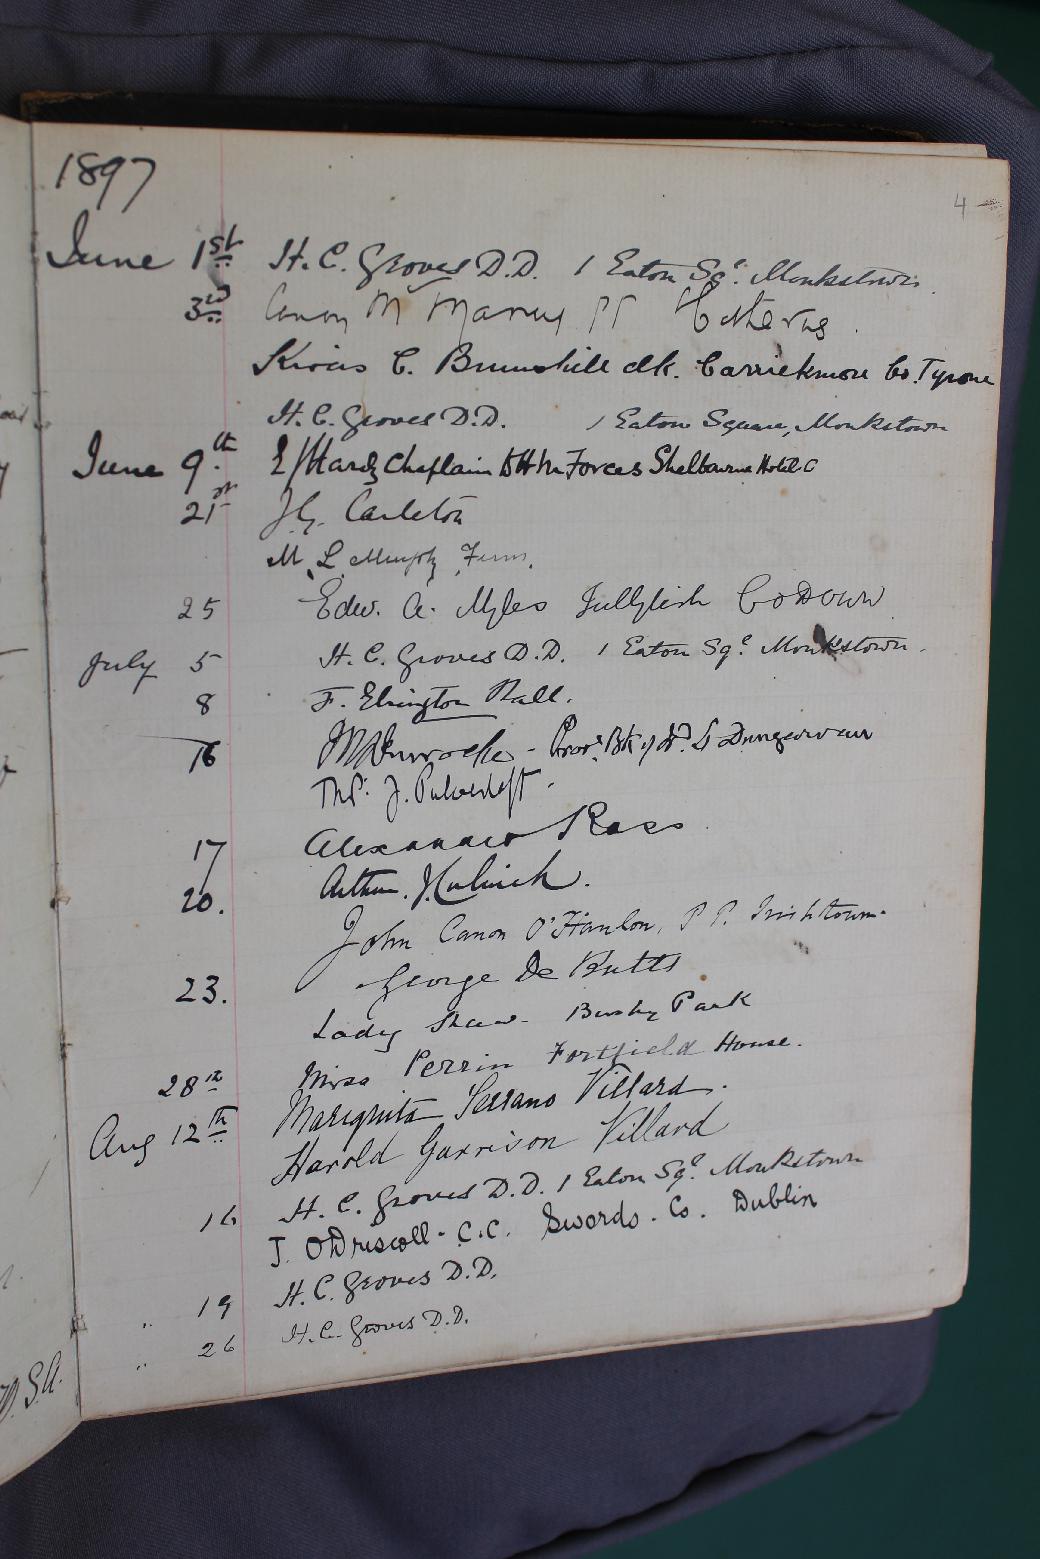 1897
4
June 1st H. C. Groves D.D. 1 Eaton Sqe. Monkstown.
3rd Canon M
C. clk. Carrickmore Co. Tyrone
H. C. Groves D.D. 1 Eaton Square, Monkstown
June 9th Hardy Chaplain to HM Forces Shelbourne Hotel
21st J. G. Carleton
M. L. Murphy
25 Edw. A. Myles Tullylish Co Down
July 5 H. C. Groves D.D. 1 Eaton Sqe. Monkstown.
8 F. Elrington Ball.
16 Provl. Bk of Id. Ld Dungarvan
Thos. J.
17 Alexander Ross
20. Arthur.
John Canon O'Hanlon, P P. Irishtown.
23. George De Butts
Lady Shaw Bushy Park
28th Miss Perrin Fortfield House.
Aug 12th Mariquita Serrano Villard.
Harold Garrison Villard
16 H. C. Groves D.D. 1 Eaton Sqe. Monkstown
J. O'Driscoll - C.C. Swords. Co. Dublin
" 19 H. C. Groves D.D.
" 26 H. C. Groves D.D.
S.A.